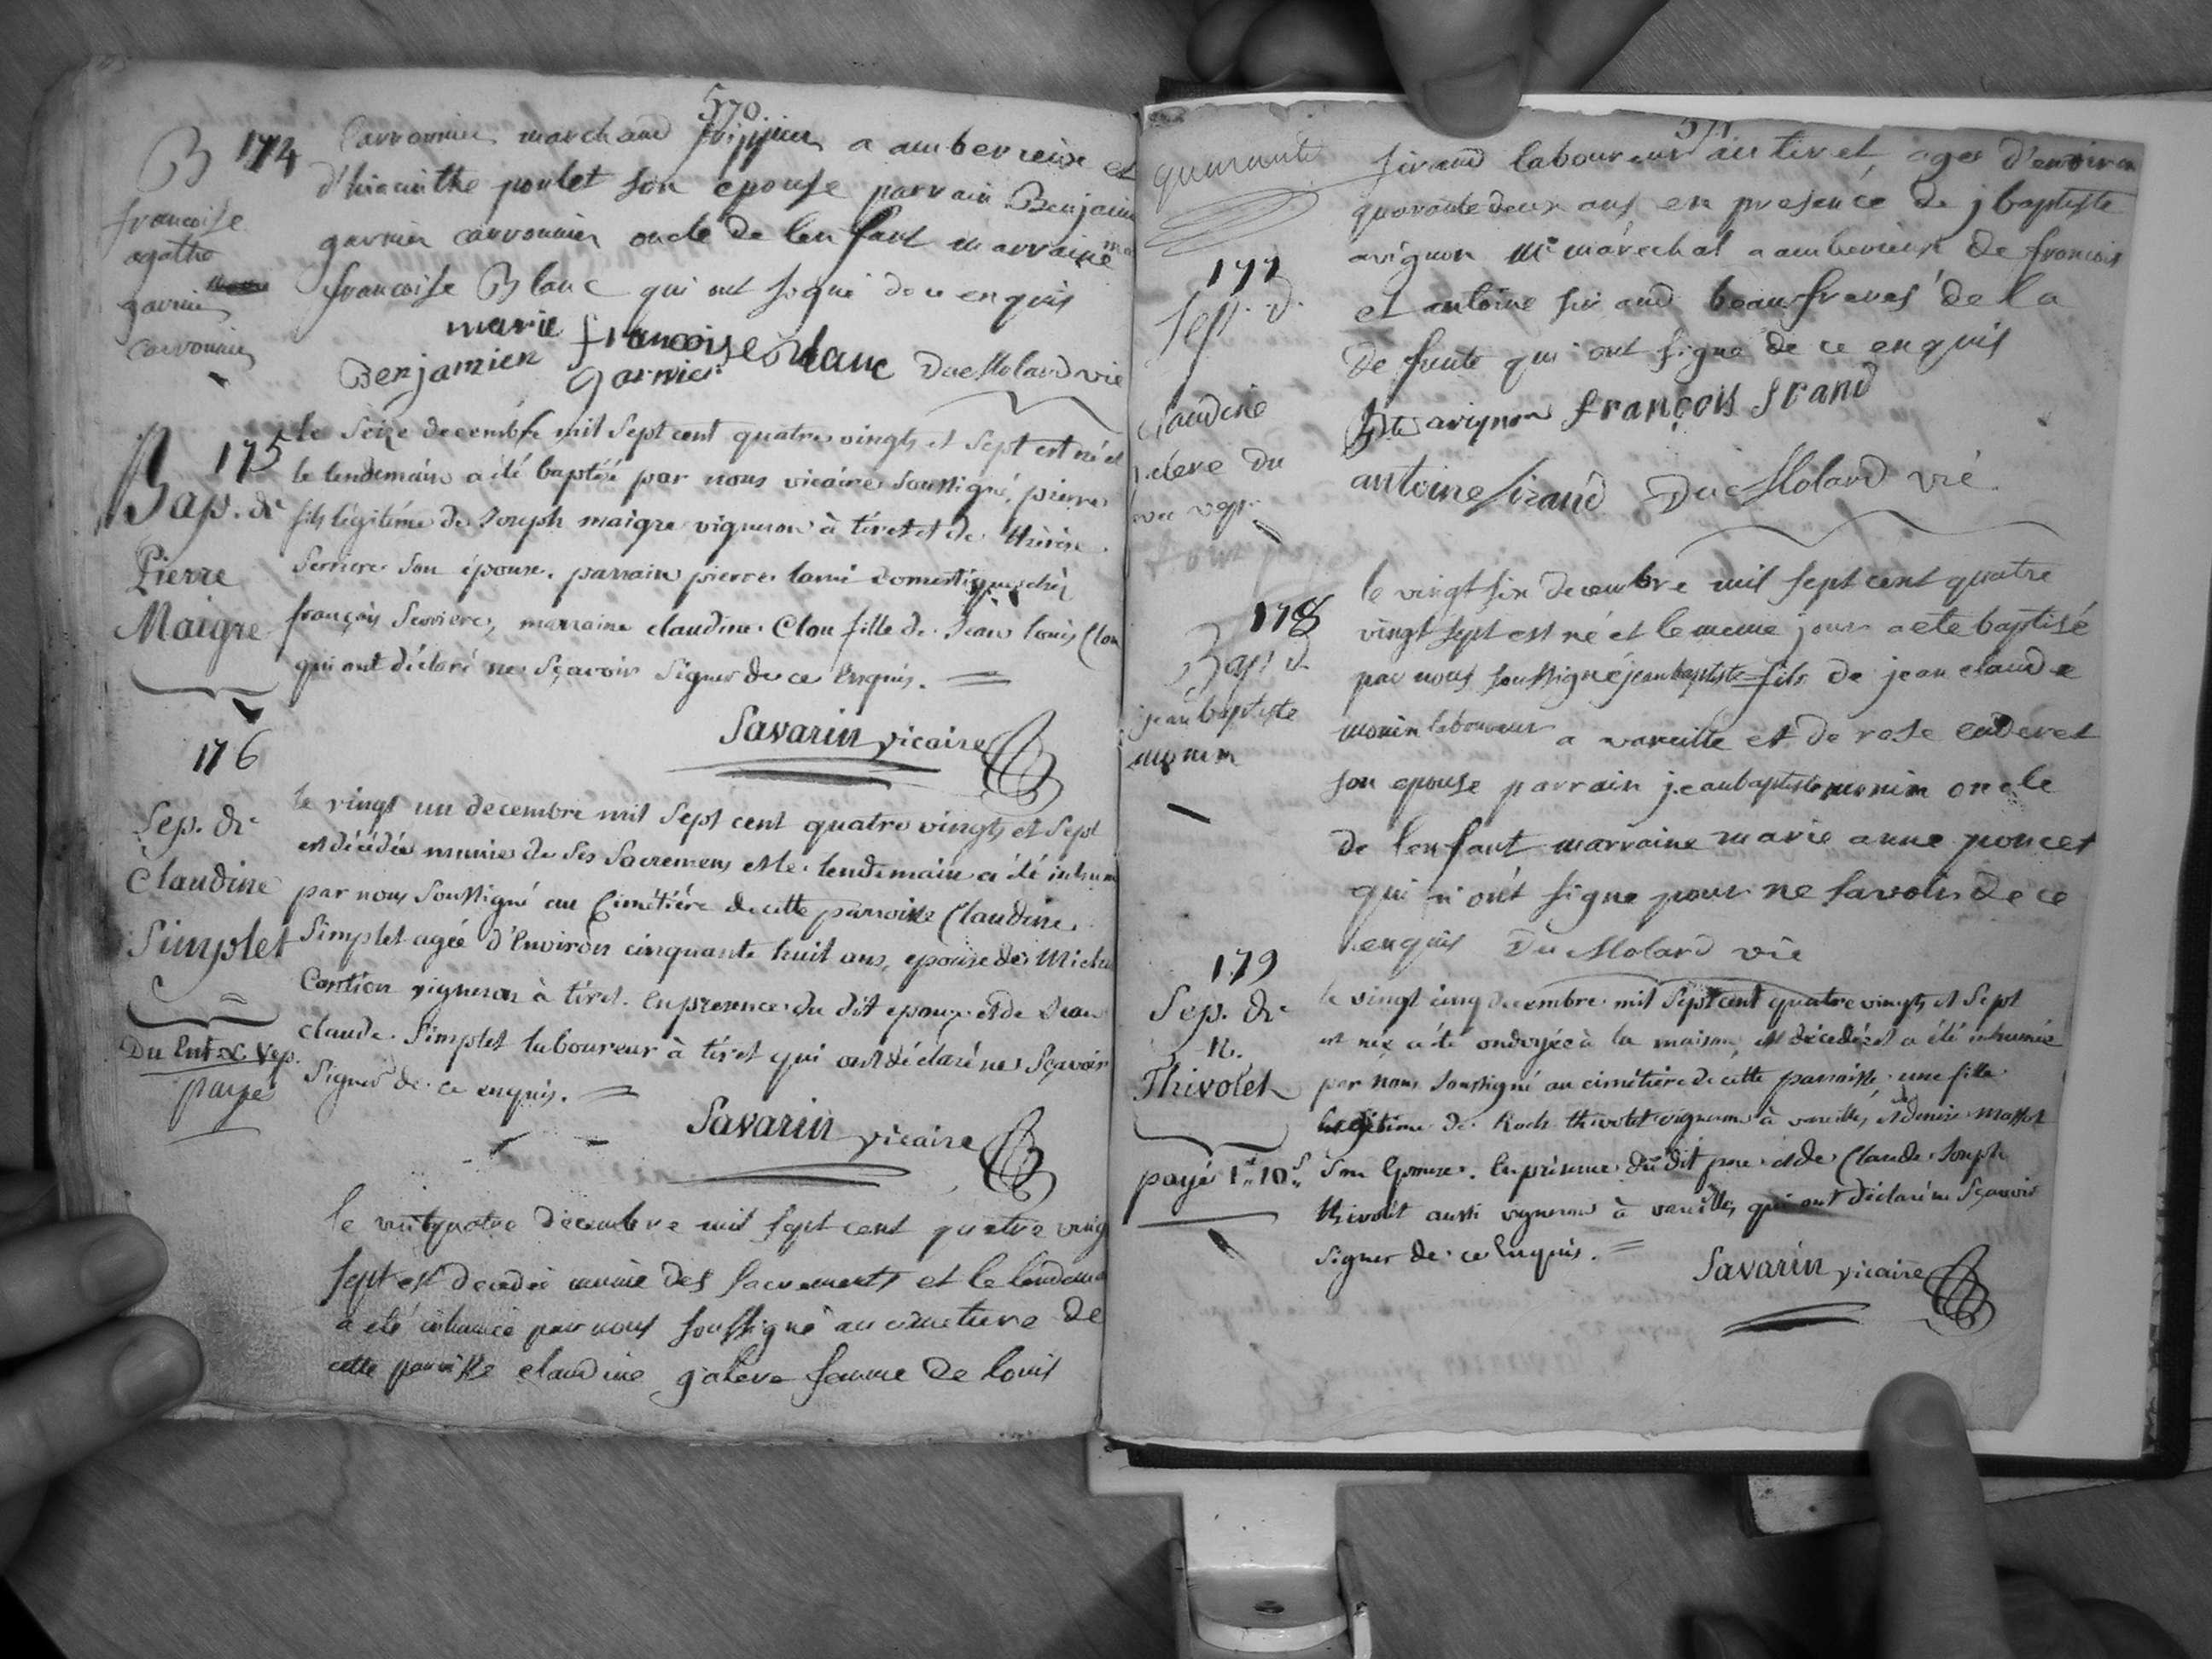 570.
B 174
francoise
agathe
garnier
carronnier
Carronnier marchand frippier a amberieux et
d'hiacinthe poulet son epouse parrain Benjamin
garnier carronnier oncle de lenfant marraine
francoise Blanc qui ont signé de ce enquis
marie francoise Blanc
Benjamien Garnier DucMolard vic
175
Bap. de
Pierre
Maigre
le seize decembre mil sept cent quatre vingts et sept est né et
le lendemain a été baptisé par nous vicaire soussigné, pierre
fils légitime de Joseph maigre vigneron à tiret et de thérèse
serriere son épouse. parrain pierre lami domestique chéz
françois serriere, marraine claudine Clou fille de Jean louis Clou
qui ont déclaré ne sçavoir signer de ce Enquis. =
Savarin vicaire
176
Sep. de
Claudine
Simplet
payé
le vingt un decembre mil sept cent quatre vingts et sept
est décédée munie de ses sacremens et le lendemain a été inhum
par nous soussigné au Cimétiére de cette parroisse Claudine
Simplet agée d'Environ cinquante huit ans, epouse de Michel
vigneron à tiret. En presence du dit epoux et de Jean
claude Simplet laboureur à tiret qui ont déclaré ne sçavoir
Signer de ce enquis. =
Savarin vicaire
le vintquatre decembre mil sept cent quatre ving
sept est decedée munie des sacrements et le lendema
a eté inhumée par nous soussigné au cimetiere de
cette paroisse claudine galere femme de louis
571.
quarante
177
Sep. d.
claudine
sirand laboureur au tiret agee d'environ
quarante deux ans en presence de j baptiste
avignon Me maréchal a amberieux de francois
et antoine sirand beaufreres de la
defunte qui ont signé de ce enquis
Bte avignon françois Sirand
antoine Sirand DucMolard vic
178
Bap. d.
jean baptiste
monin
le vingt six decembre mil sept cent quatre
vingt sept est né et le meme jour a ete baptisé
par nous soussigné jean baptiste fils de jean claude
monin laboureur a vareille et de rose enderet
son epouse parrain jean baptiste monin oncle
de lenfant marraine marie anne poncet
qui n'ont signe pour ne savoir de ce
enquis DucMolard vic
179
Sep. de
N.
Thivolet
payé 1# 10s
le vingt cinq decembre mil sept cent quatre vingts et sept
est née a été ondoyée à la maison, est décédée et a été inhumée
par nous soussigné au cimétiére de cette parroisse une fille
legitime de Roch thivolet vigneron à vareilles, et denise Massot
son Epouse. En présence du dit pere et de Claude Joseph
thivolet aussi vigneron à vareilles, qui ont déclaré ne sçavoir
signer de ce Enquis. =
Savarin vicaire